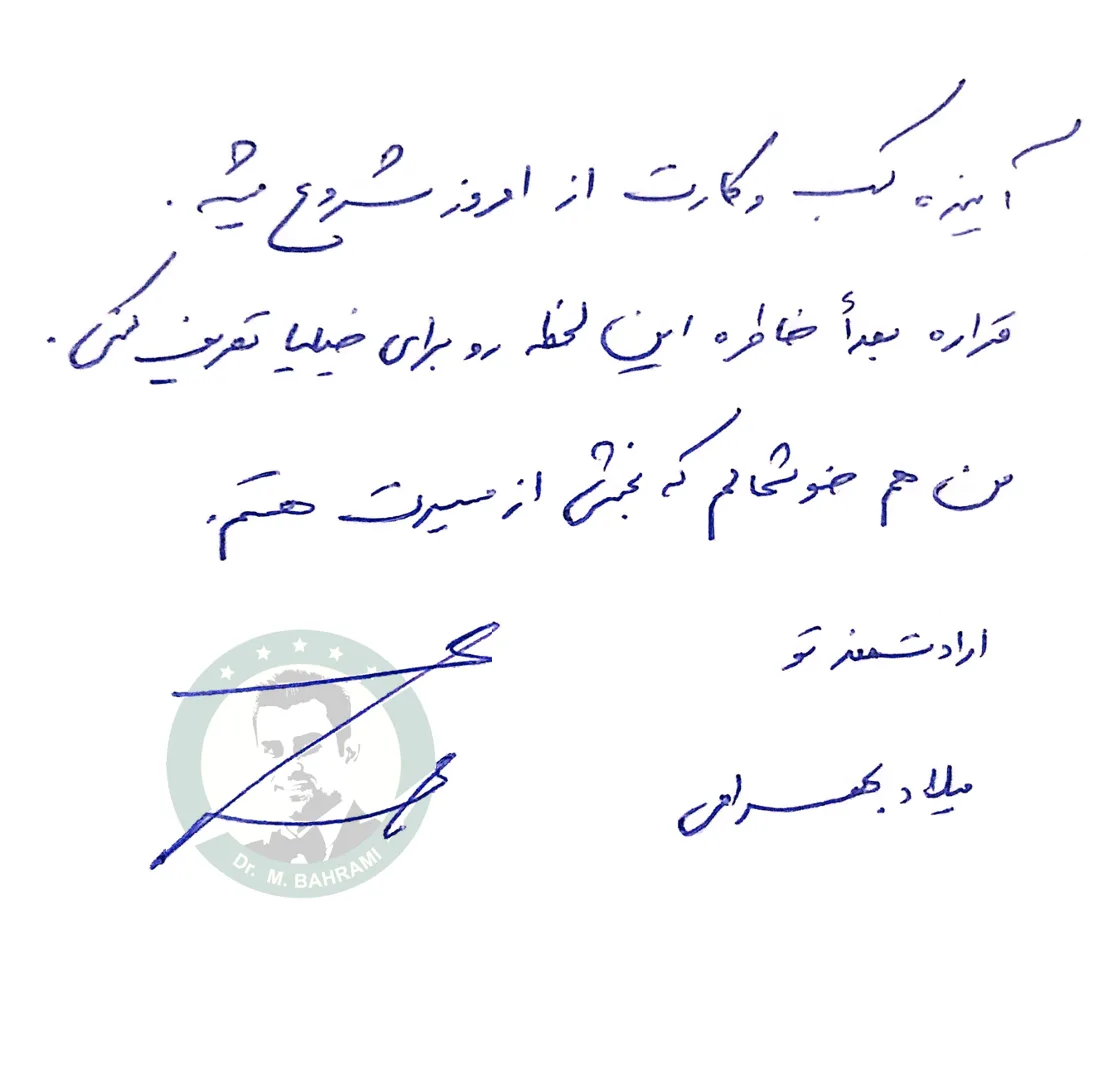 آینده کسب وکارت از امروز شروع میشه.
قراره بعداً خاطره این لحظه رو برای خیلیا تعریف کنی.
من هم خوشحالم که بخشی از مسیرت هستم.
ارادتمند تو
میلاد بهرامی
Dr. M. BAHRAMI